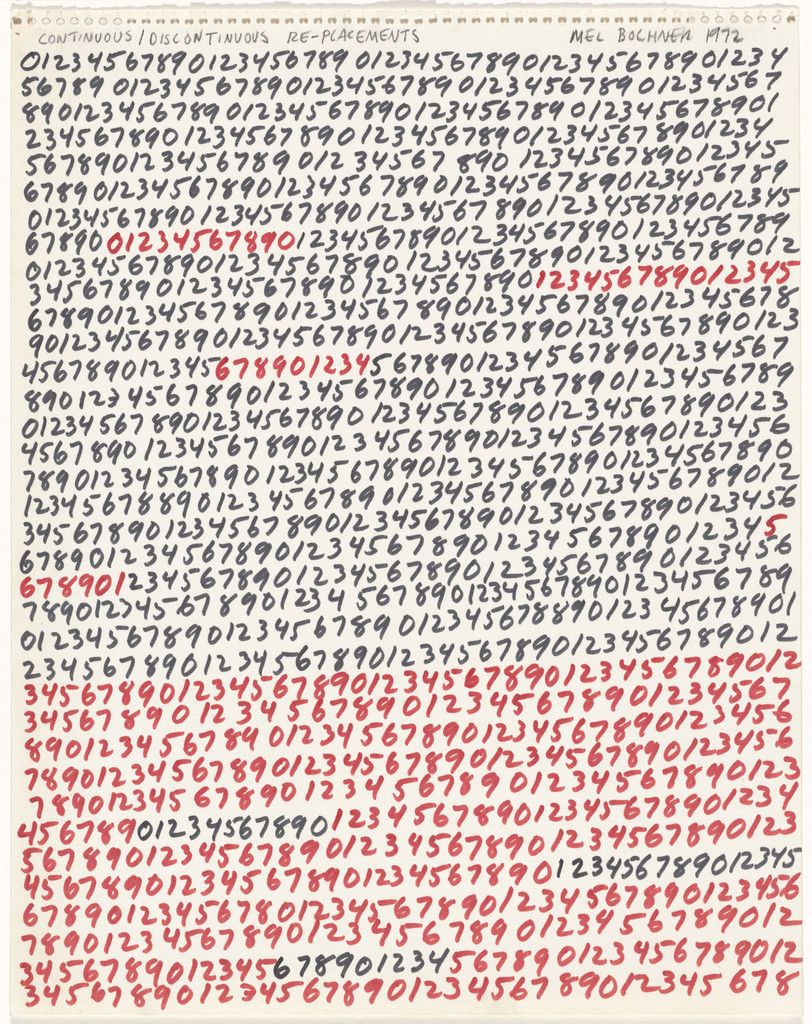 CONTINUOUS/DISCONTINUOUS RE-PLACEMENTS MEL BOCHNER 1972
01234567890123456789 01234567890123456789 01234
56789 01234567890123456789 012345678901234567
890123456789 01234567890123456789 012345678901
234567890 1234567890 1234567890123456789 01234
567890123456789 0123456789 0 123456789012345
67890123456789012345678901234567890123456789
0123456789012345678901234567890123456789012345
678900123456789012345678901234567890123456789
0123456789012345678901234567890123456789012
345678901234567890 1234567890123456789012345
6789012345678901234567890123456789012345678
901234567890123456789012345678901234567890123
45678901234567890123456789012345678901234567
890123 4567890123456789012345678901234567 89
01234567890123456789012345678901234567890123
4567890123456789012345678901234567890123456
78901234567890 1234567890123456789012345678901234567890
12345678890123 4567890123456789012345678901 2
34567890123456789012345678901234567890123456
6789012345678901234567890123456789012345
678901234567890123456789012345678901234567890123456
7890123456789012345678901234567890123456789
01234567890123456789012345678901234567 8901
23456789012345678901234567890123456789012
34567890123456789012345678901234567890 12
34567890 1234567890123456789 01234567
8901234567890123456789012345678901 23456
7890123456789012345678901234567890123456
7890123456789012345678901234567890123
45678901234567890 1234567890123456789 01234
567890123456789012345678901234567890123
45678901234567890123456789012345678 9012345
67890123456780123456789012345678901 23456
7890123 456789012345678901234567 89012
3456789012345678901234567890123456789012
345678901234567890123456789012345 678